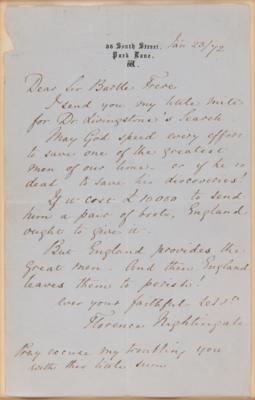 35 South Street, Jan 23/72
Park Lane,
W.
Dear Sir Bartle Frere
I send you my little mite
for Dr. Livingstone's Search.
May God speed every effort
to save one of the greatest
men of our time - or if he is
dead to save his discoveries!
If it cost £10000 to send
him a pair of boots, England
ought to give it.
But England provides the
Great men. And then England
leaves them to perish!
ever your faithful
Florence Nightingale
Pray excuse my troubling you
with this little sum